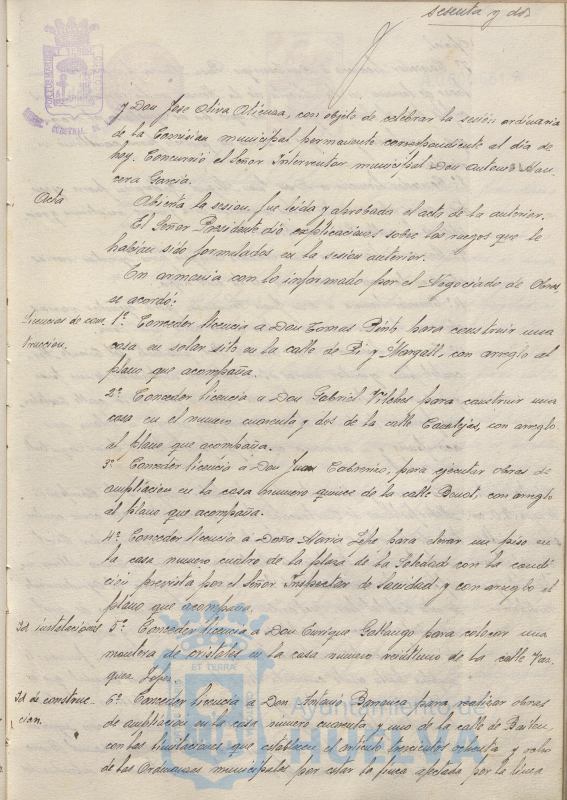 sesenta y dos
y Don Jose Oliva Atienza, con objeto de celebrar la sesión ordinaria
de la Comision municipal permanente correspondiente al dia de
hoy. Concurrió el Señor Interventor municipal Don Antonio
García.
Acta
Abierta la sesion, fue leida y aprobada el acta de la anterior.
El Señor Presidente dió explicaciones sobre los ruegos que le
habian sido formulados en la sesion anterior.
En armonia con lo informado por el Negociado de Obras
se acordó:
Licencias de cons-
truccion.
1º Conceder licencia a Don Tomas Pinto para construir una
casa en solar sito en la calle de Pi y Margall, con arreglo al
plano que acompaña.
2º Conceder licencia a Don Gabriel Vilches para construir una
casa en el numero cuarenta y dos de la calle Canalejas, con arreglo
al plano que acompaña.
3º Conceder licencia a Don Juan para ejecutar obras de
ampliacion en la casa numero quince de la calle con arreglo
al plano que acompaña.
4º Conceder licencia a Doña Maria Lepe para elevar un piso en
la casa numero cuatro de la plaza de la Soledad con la condi-
cion prevista por el Señor Inspector de Sanidad y con arreglo al
plano que acompaña.
Id instalaciones
5º Conceder licencia a Don Enrique Gallango para colocar una
montera de cristales en la casa numero veintiuno de la calle Vaz-
quez Lopez.
Id de construc-
cion.
6º Conceder licencia a Don Antonio para realizar obras
de ampliacion en la casa numero cuarenta y uno de la calle de Bailen
con las limitaciones que establece el articulo trescientos ochenta y ocho
de las Ordenanzas municipales por estar la finca afectada por la linea
ET TERRAE
Ayuntamiento de
HUELVA